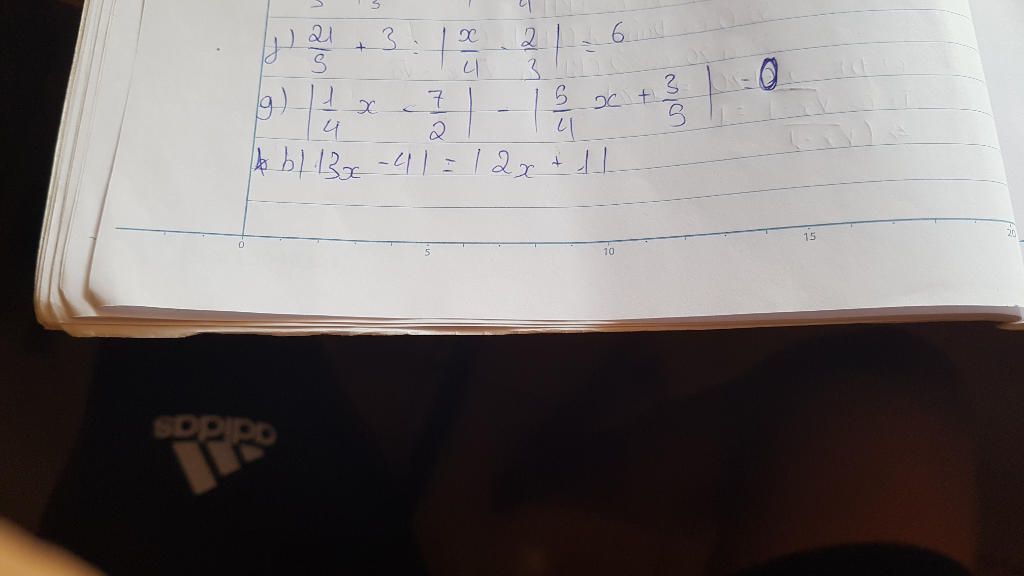 f) 21/5 + 3 : |x/4 - 2/3| = 6
g) |1/4 x - 7/2| - |5/4 x + 3/5| = 0
h) |3x - 4| = |2x + 1|
0 5 10 15 20
adidas